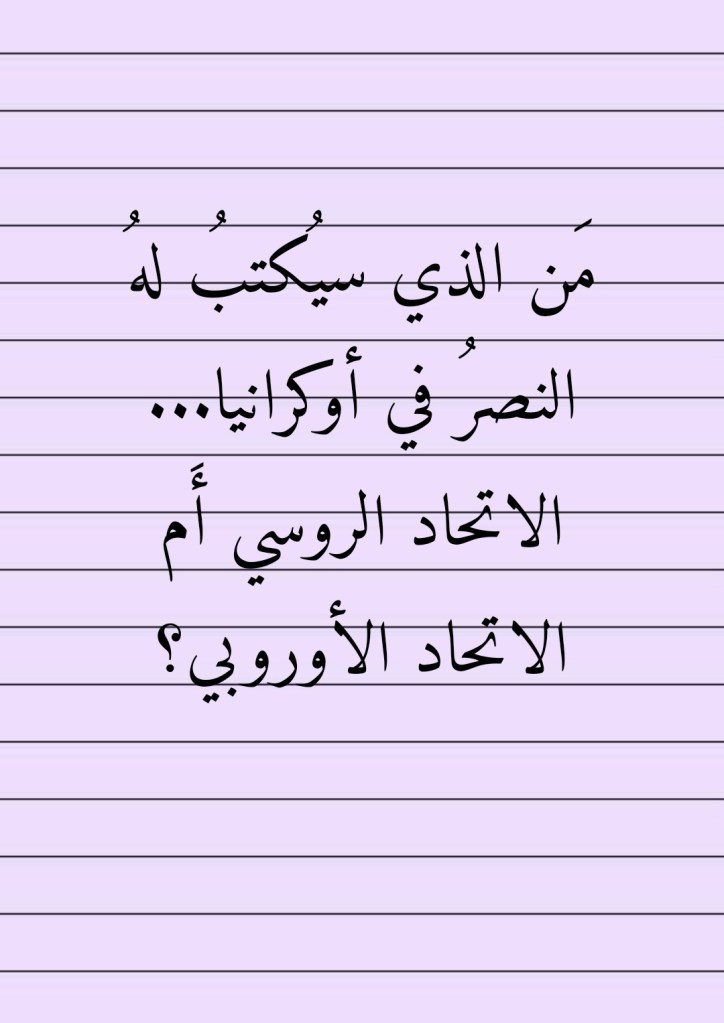 مَن الذي سيُكتبُ لهُ
النصرُ في أوكرانيا...
الاتحاد الروسي أَم
الاتحاد الأوروبي؟